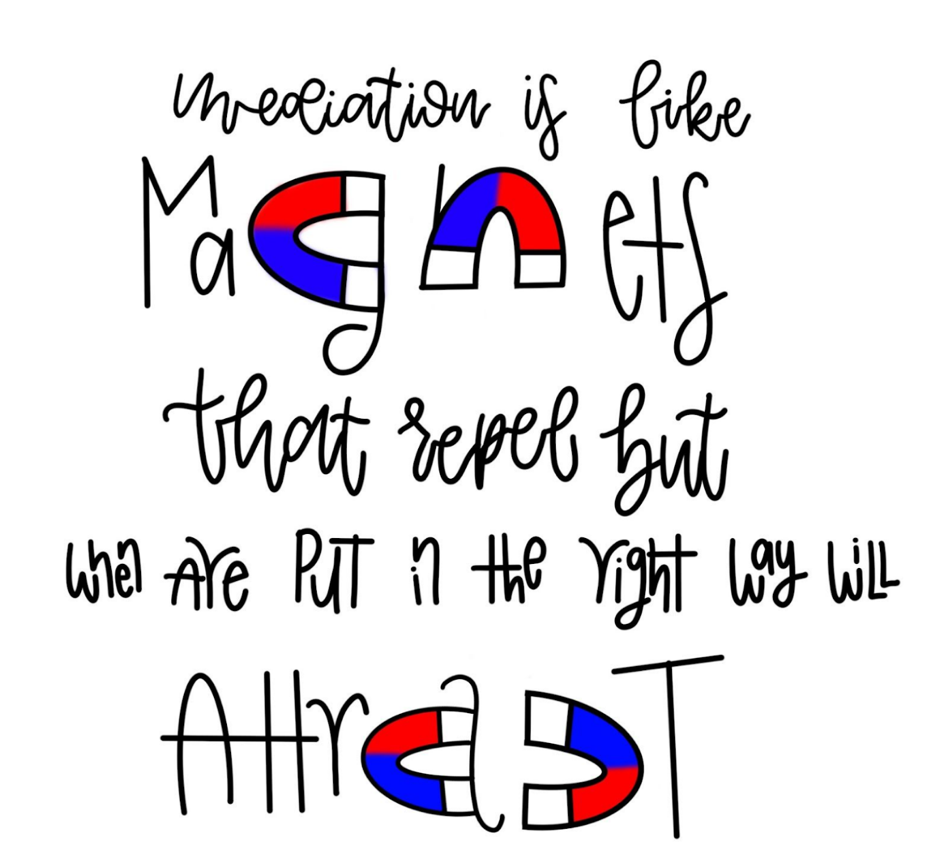 mediation is like
Magnets
that repel but
when Are PUT in the right way will
AttracT